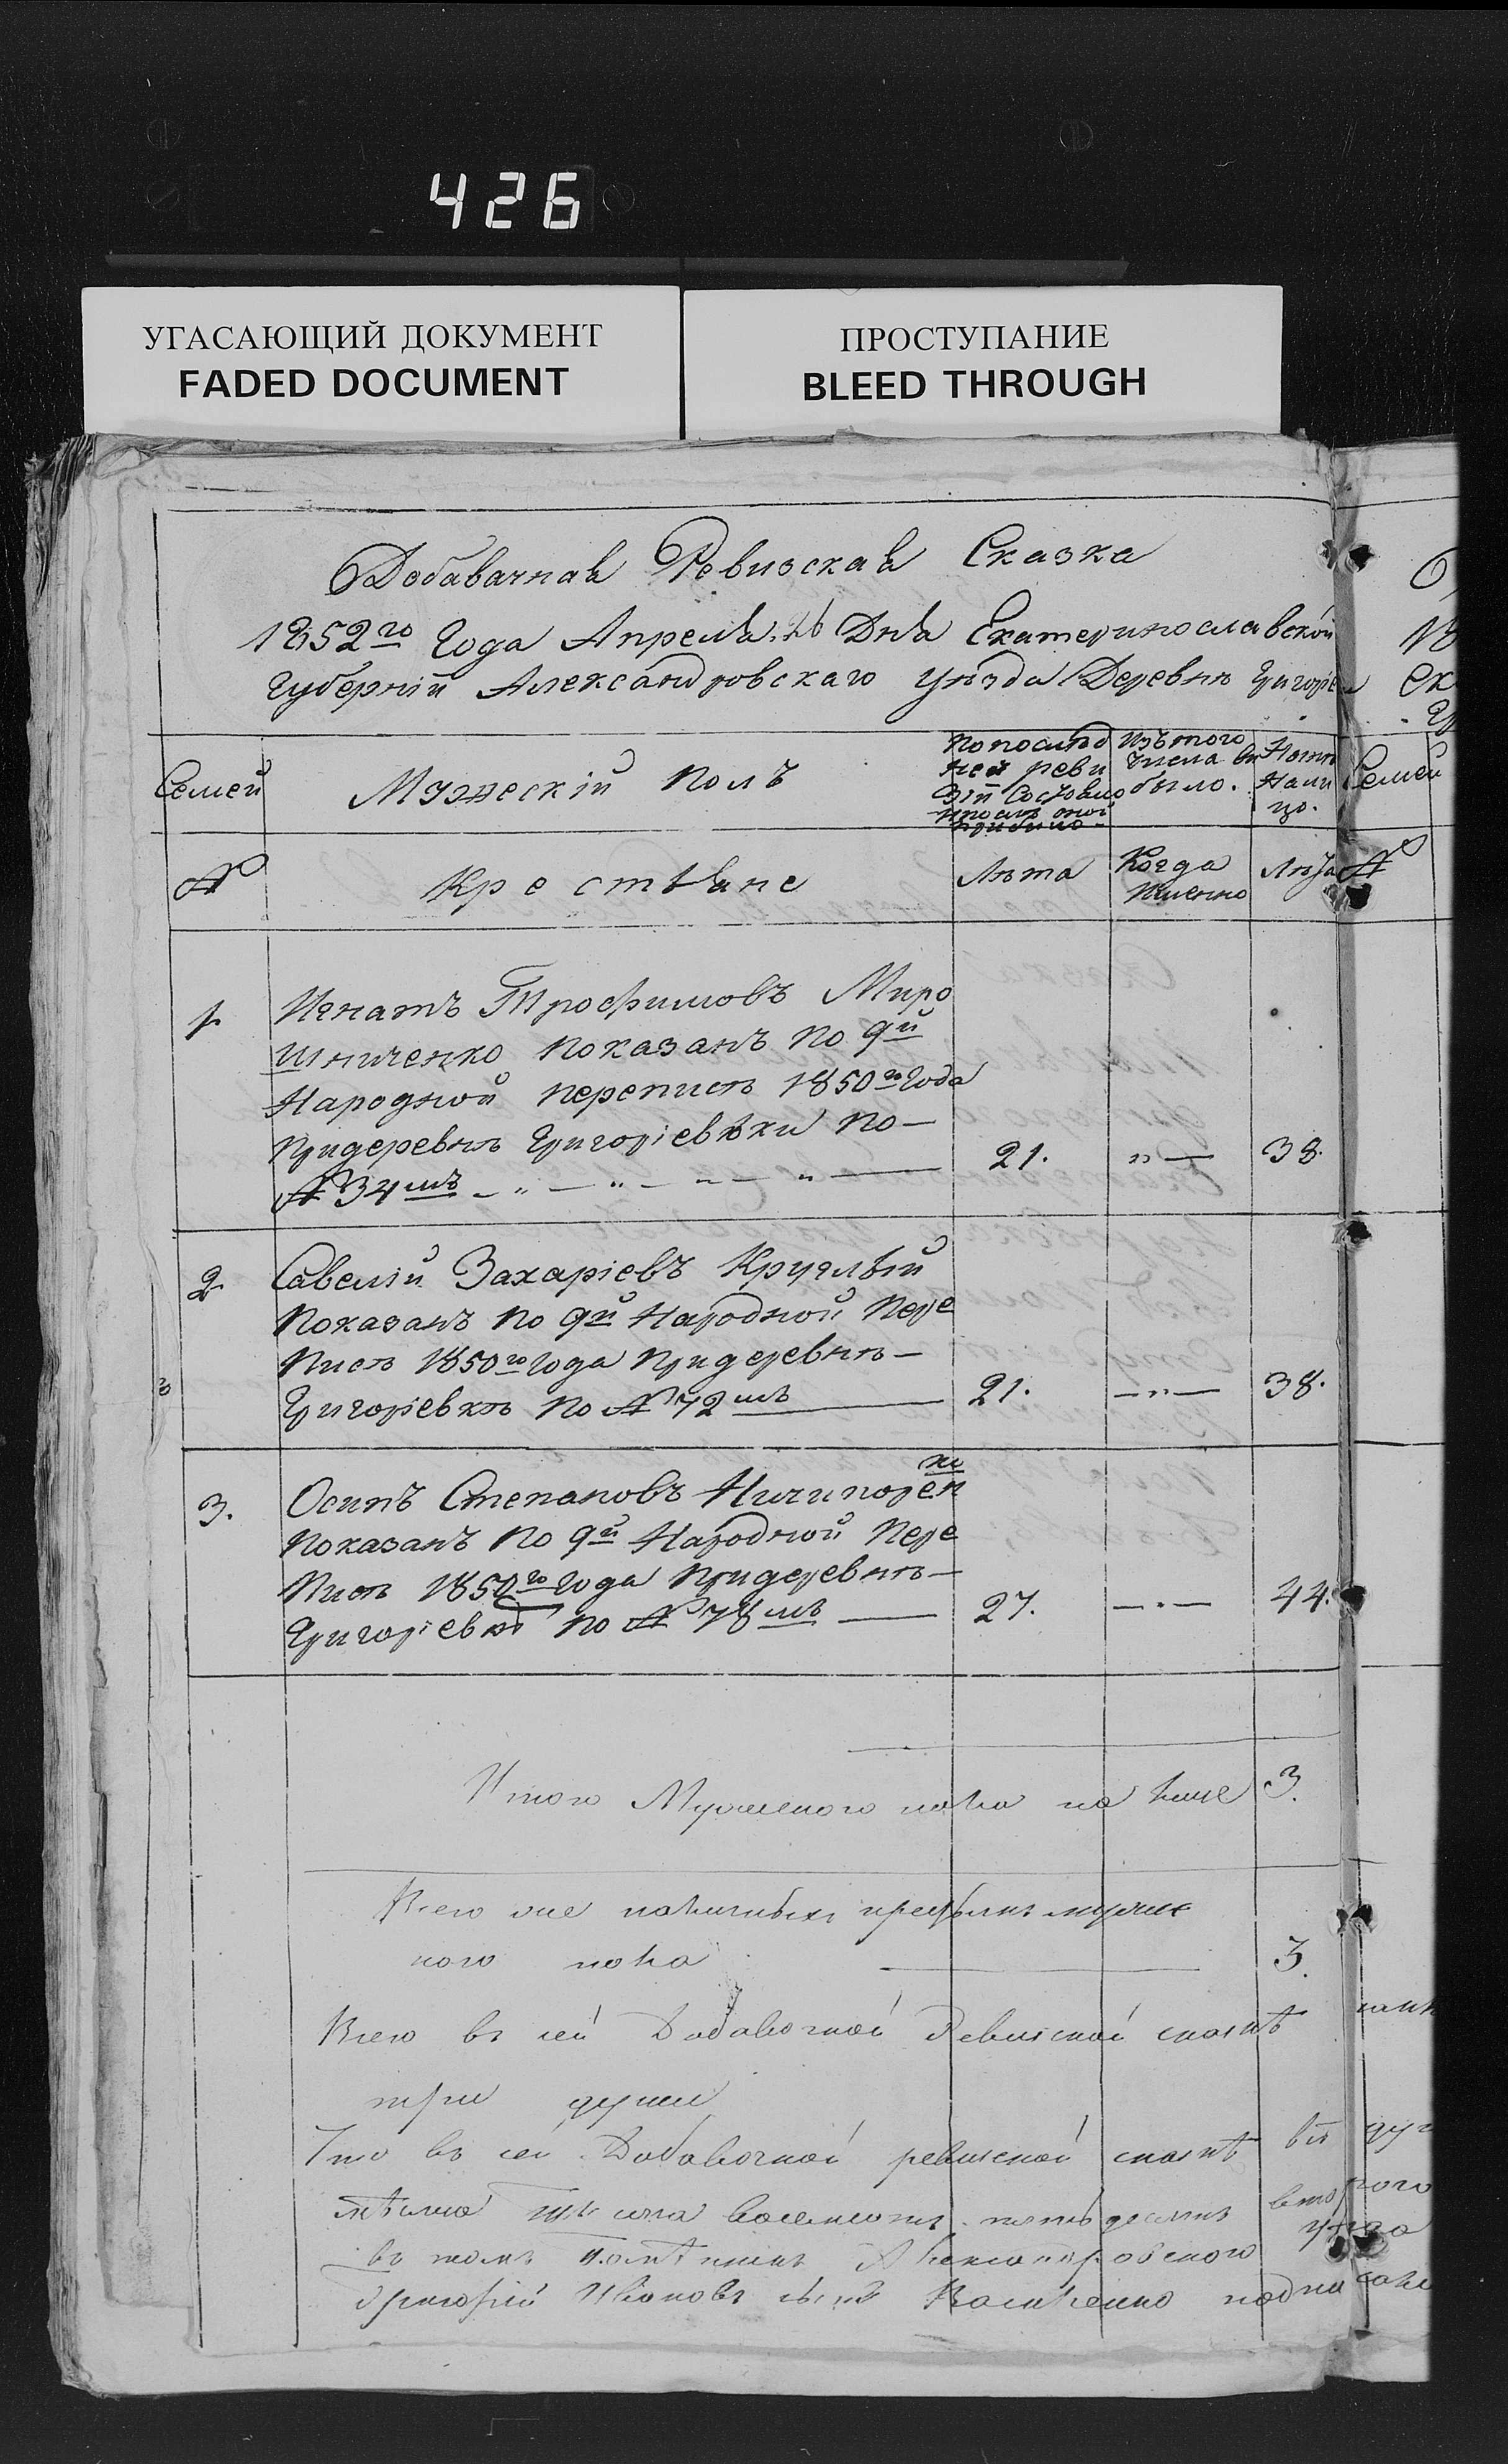 426
УГАСАЮЩИЙ ДОКУМЕНТ
FADED DOCUMENT
ПРОСТУПАНИЕ
BLEED THROUGH
Добавачная Ревизская Сказка
1852го Года Апреля 26 Дня Екатеринославской
Губерніи Александровскаго Уѣзда Деревнѣ Григорiе
Семей
Мужескій Полъ
По послѣд
ней реви
зіи Состояло
Изъ того
Числа вы
было.
Нынѣ
Нали
цо.
Семей
№
Крестьяне
Лѣта
Когда
Именно
Лѣта
№
1.
Игнатъ Трофимовъ Миро
шниченко Показанъ По 9й
Народной переписѣ 1850го Года
Придеревнѣ Григоріевки По —
№ 34мъ
21.
38.
2.
Савелій Захаріевъ Круглый
Показанъ По 9й Народной Пере
Писѣ 1850го Года Придеревнѣ —
Григоріевкѣ По № 72мъ
21.
38.
3.
Осипъ Степановъ Ничипорен
ко
Показанъ По 9й Народной Пере
Писѣ 1850го Года Придеревнѣ —
Григоріевкѣ По № 78мъ
27.
44.
Итого Мужеского пола на лице 3.
Всего
наличныхъ
мужес
кого пола 3.
Всего въ сей Добавочной Ревизской сказкѣ
три души
Что въ сей Добавочной ревизской сказкѣ
тысяча восемсотъ пятьдесятъ второго
въ томъ Помѣщикъ Александровского
Григорій Ивановъ сынъ